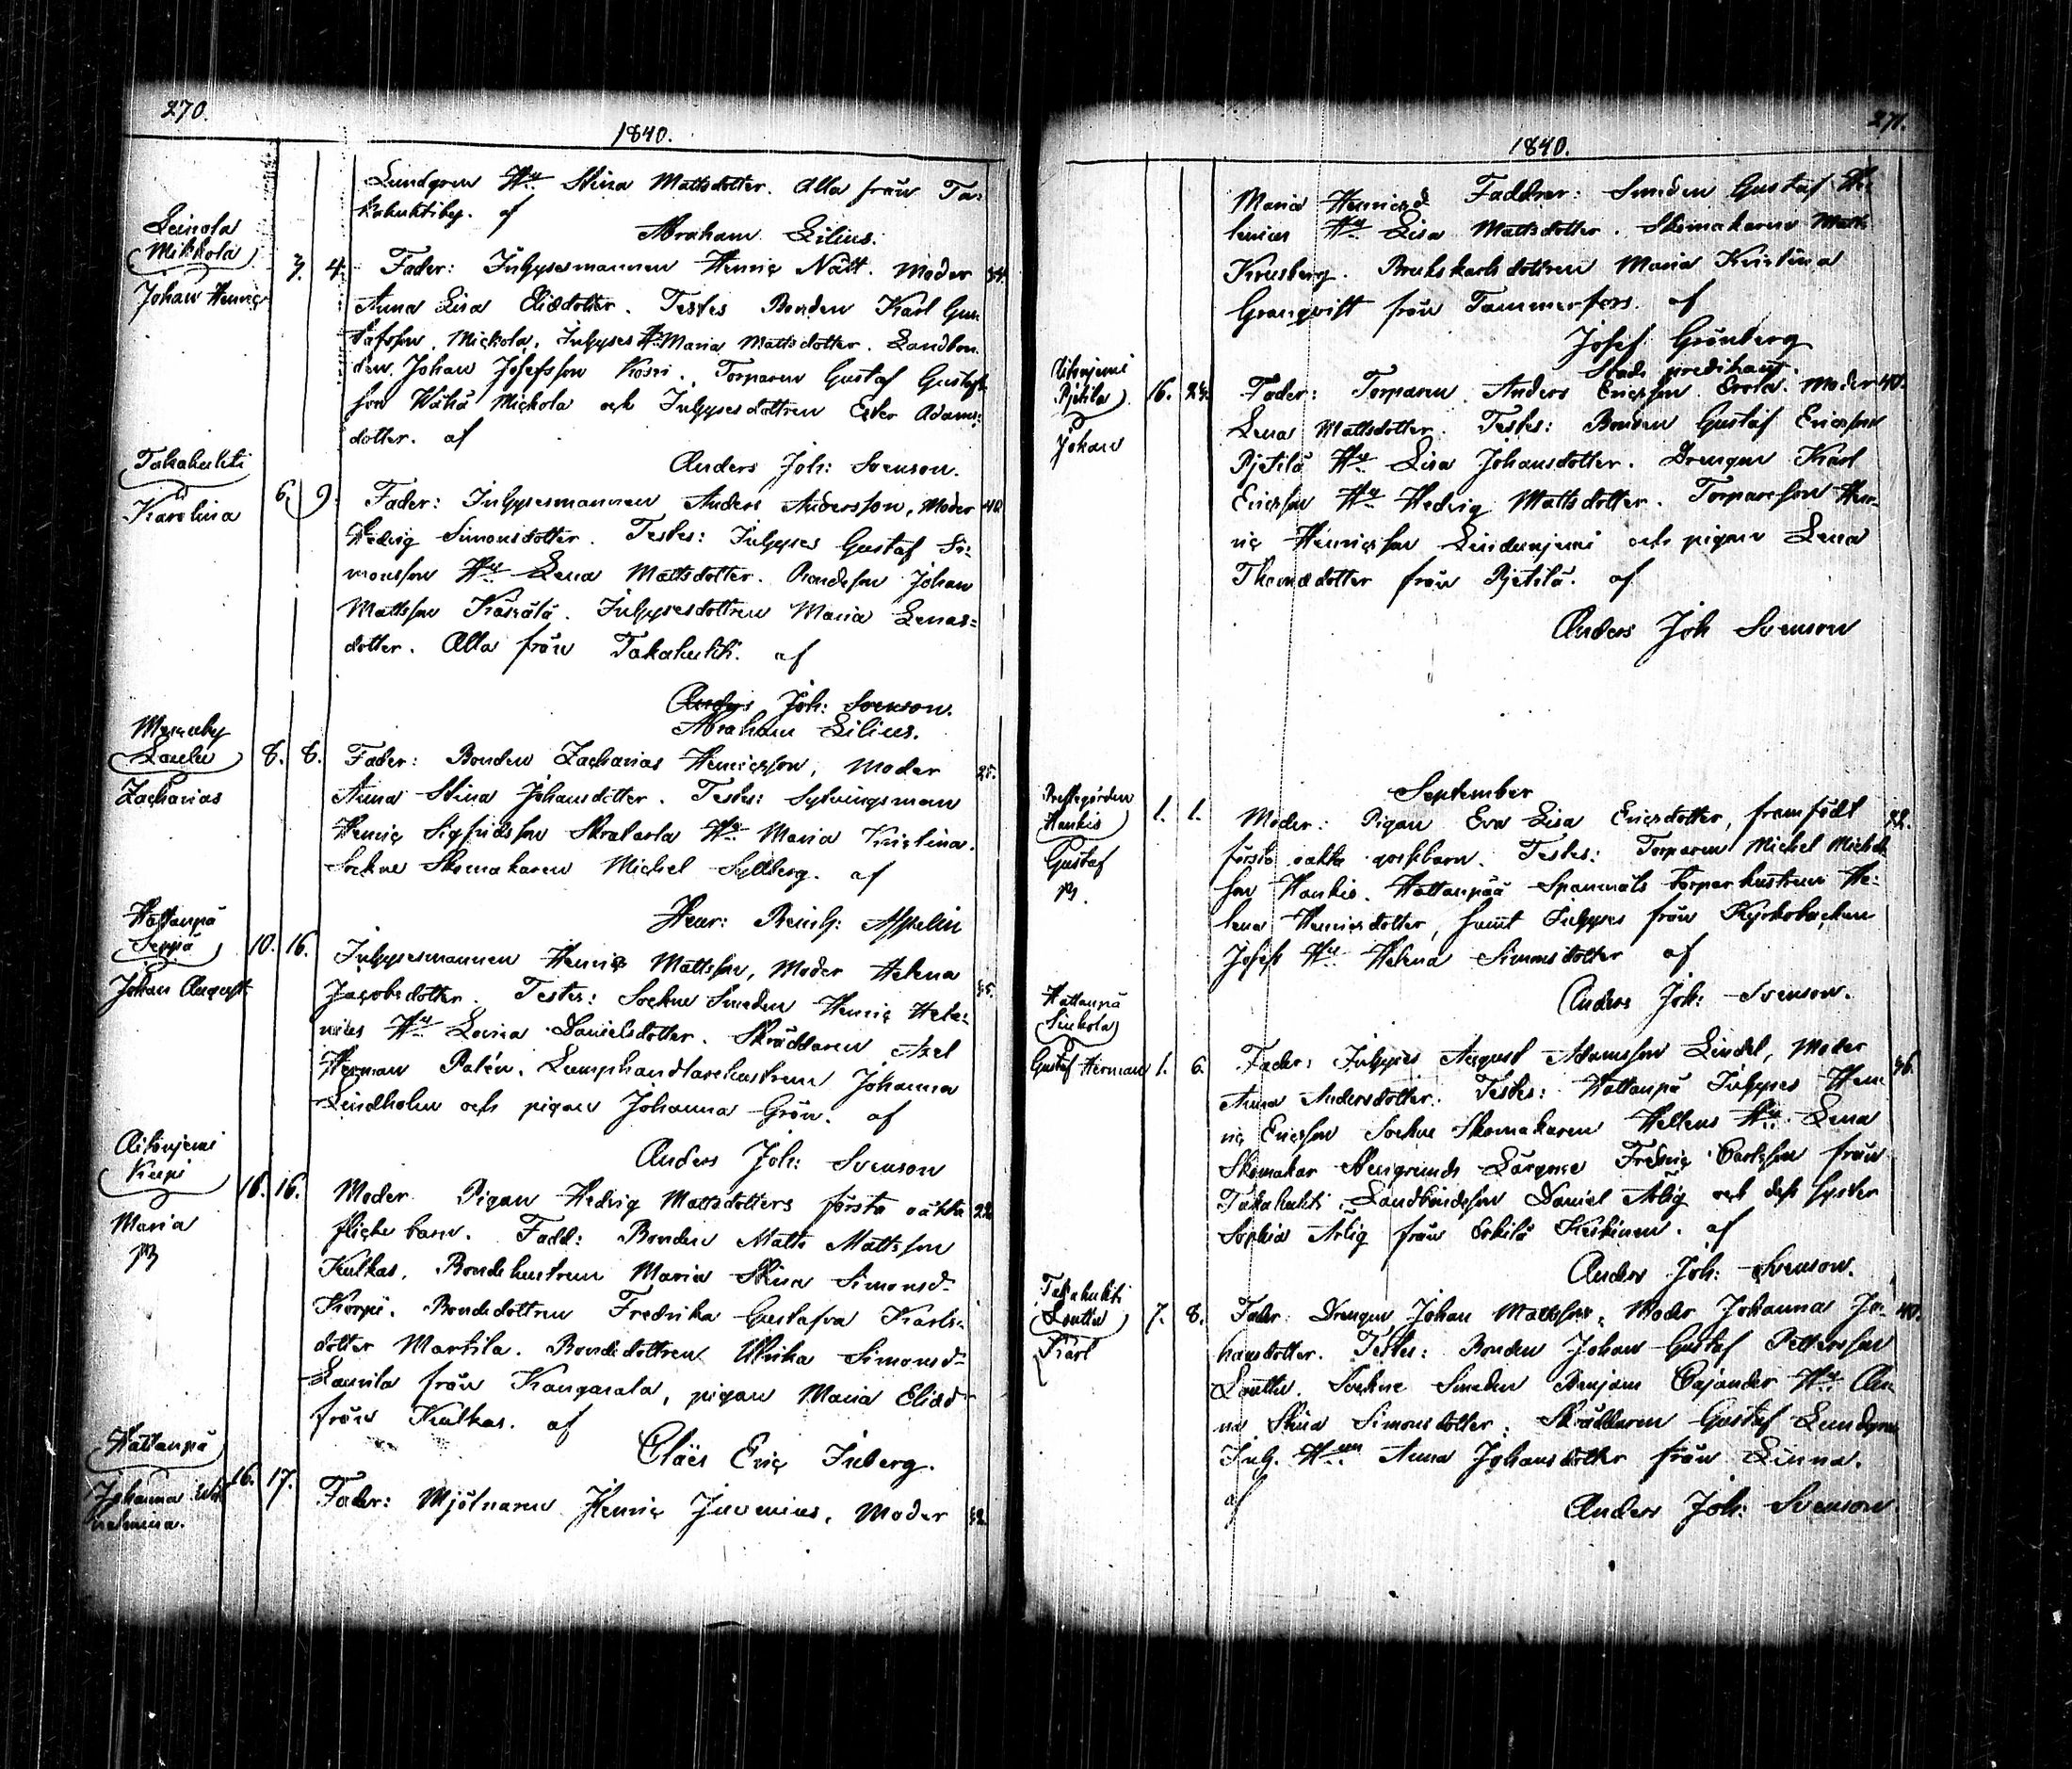 270.
1840.
Lundgren Hu Stina Mattsdotter. Alla från Ta-
kahuhtiby. af
Abraham Lilius.
Leinola
Mikkola
Johan Henric
3. 4. Fader: Inhysesmannen Henric Nätt. Moder 34.
Anna Lisa Eliædotter. Testes Bonden Karl Gus
tafsson, Mickola, Inhyses H. Maria Mattsdotter. Landbon
den Johan Josefsson Kossi. Torparen Gustaf Gustafs
son Wähä Mickola och Inhysesdottren Ester Adams-
dotter. af
Anders Joh: Svenson.
Takahuhti
Karolina
6. 9. Fader: Inhysesmannen Anders Andersson, Moder 40
Hedvig Simonsdotter. Testes: Inhyses Gustaf Si-
monsson Hu Lena Mattsdotter. Bondeson Johan
Mattsson Käsälä. Inhysesdottren Maria Lenas-
dotter. Alla från Takahuhti. af
Anders Joh: Svenson.
Abraham Lilius.
Messuby
Laulu
Zacharias
8. 8. Fader: Bonden Zacharias Henricsson, Moder 25.
Anna Stina Johansdotter. Testes: Sytningsman
Henric Sigfridsson Skratarla Hu Maria Kristina.
Sockne Skomakaren Michel Sellberg. af
Henr: Reinh: Appelin
Hattanpä
Seppä
Johan August
10. 16. Inhysesmannen Henric Mattsson, Moder Helena 35.
Jacobsdotter. Testes: Sockne Smeden Henric Hele-
nius Hu Lovisa Danielsdotter. Skräddaren Axel
Herman Palén. Lumphandlarehustrun Johanna
Lindholm och pigan Johanna Grön. af
Anders Joh: Svenson
Aitonjemi
Korpi
Maria
16. 16. Moder Pigan Hedvig Mattsdotters första oäkta 22
flicke barn. Fadd: Bonden Matts Mattsson
Kulkas, Bondehustrun Maria Stina Simonsd-
Korpi. Bondedottren Fredrika Gustafva Karls-
dotter Martila. Bondedottren Ulrika Simonsd-
Laurila från Kangasala, pigan Maria Eliæd-
från Kulkas. af
Claës Eric Inberg.
Hattanpä
Johanna Wil
helmina.
16. 17. Fader: Mjölnaren Henric Juvenius, Moder 32.
271.
1840.
Maria Henricsd Faddrar: Smeden Gustaf He-
lenius Hu Lisa Mattsdotter. Skomakaren Matts
Krusberg. Brukskarls dottren Maria Kristina
Granqvist från Tammerfors. af
Josef Grönberg
Stads predikant.
Aitonjemi
Pjetilä
Johan
16. 23. Fader: Torparen Anders Ericsson Erola. Moder 40.
Lena Mattsdotter. Testes: Bonden Gustaf Ericsson
Pjetilä Hu Lisa Johansdotter. Drengen Karl
Ericsson Hu Hedvig Mattsdotter. Torpareson Hen-
ric Henricsson Lindunjemi och pigan Lena
Thomædotter från Pjetilä. af
Anders Joh Svenson
September
Prestegården
Hankis
Gustaf
1. 1. Moder: Pigan Eva Lisa Ericsdotter, framfödt 32.
första oäkta gossebarn. Testes: Torparen Michel Michels
son Hankis. Hattanpää Spannnäls torparhustrun He-
lena Henricsdotter, samt Inhyses från Kyrkobacken
Josefs Hu Helena Simonsdotter af
Anders Joh: Svenson.
Hattanpä
Sinkola
Gustaf Herman
1. 6. Fader: Inhyses August Adamsson Lindel, Moder 36.
Anna Andersdotter. Testes: Hattanpä Inhyses Hen
ric Ericsson Sockne Skomakaren Hellens Hu Lena
Skomakar Stengrunds Lärgosse Fredric Carlsson från
Takahuhti. Landbondeson Daniel Arlig och dess syster
Sophia Arlig från Erkilä Keskinen. af
Anders Joh: Svenson.
Takahuhti
Louttu
Karl
7. 8. Fader: Drengen Johan Mattsson, Moder Johanna Jo- 40.
hansdotter. Testes: Bonden Johan Gustaf Pettersson
Louttu. Sockne Smeden Benjam Cajander Hu An-
na Stina Simonsdotter. Skräddaren Gustaf Lundgren
Inh. Hun Anna Johansdotter från Linna.
af
Anders Joh: Svenson